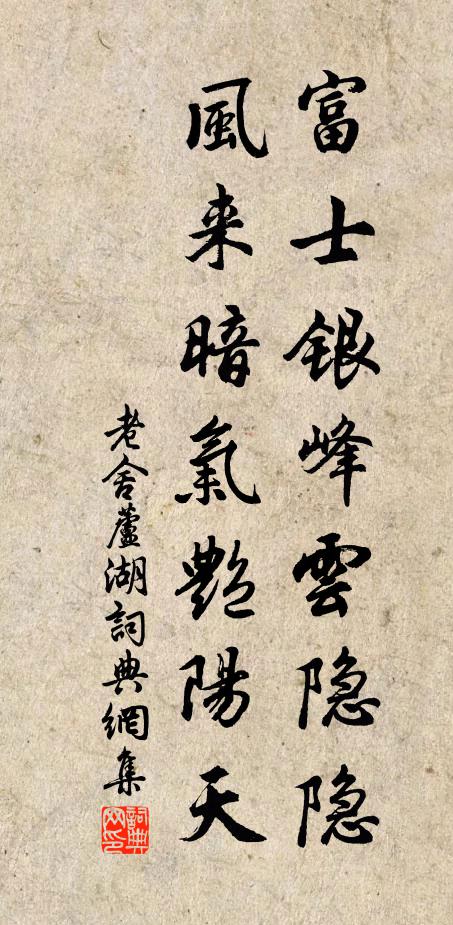 富士銀峰雲隐隐
風来暗氣艶陽天
老舍蘆湖詞典網集
詞典網印